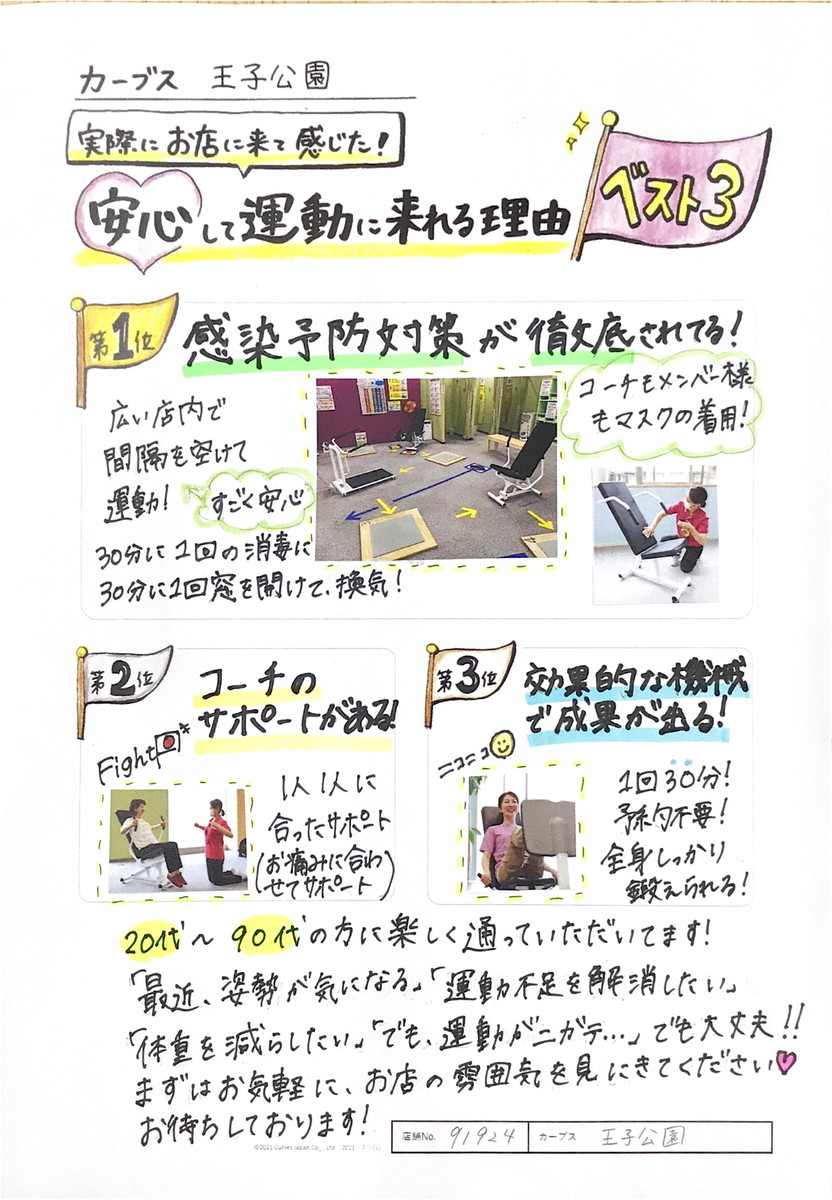 カーブス 王子公園
実際にお店に来て感じた!
安心して運動に来れる理由
ベスト3
第1位
感染予防対策が徹底されてる!
コーチもメンバー様
もマスクの着用!
広い店内で
間隔を空けて
運動!
すごく安心
30分に1回の消毒に
30分に1回窓を開けて、換気!
第2位
コーチの
サポートがある!
Fight
1人1人に
合ったサポート
(お痛みに合わ
せてサポート)
第3位
効果的な機械
で成果が出る!
ニコニコ
1回30分!
予約不要!
全身しっかり
鍛えられる!
20代〜90代の方に楽しく通っていただいてます!
「最近、姿勢が気になる」「運動不足を解消したい」
「体重を減らしたい」「でも、運動がニガテ...」でも大丈夫!!
まずはお気軽に、お店の雰囲気を見にきてください
お待ちしております!
©2021 Curves Japan Co., Ltd.
店舗No. 91924 カーブス 王子公園